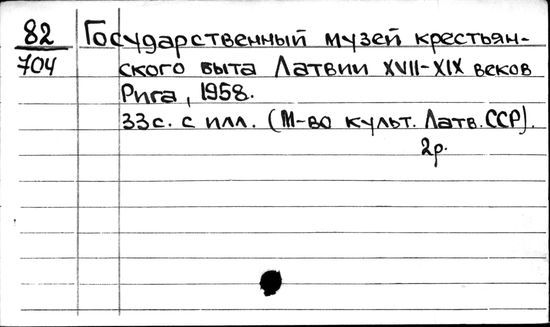 82 Государственный музей крестьян-
704 ского быта Латвии XVII-XIX веков
Рига, 1958.
33с. с илл. (М-во культ. Латв. ССР).
2р.